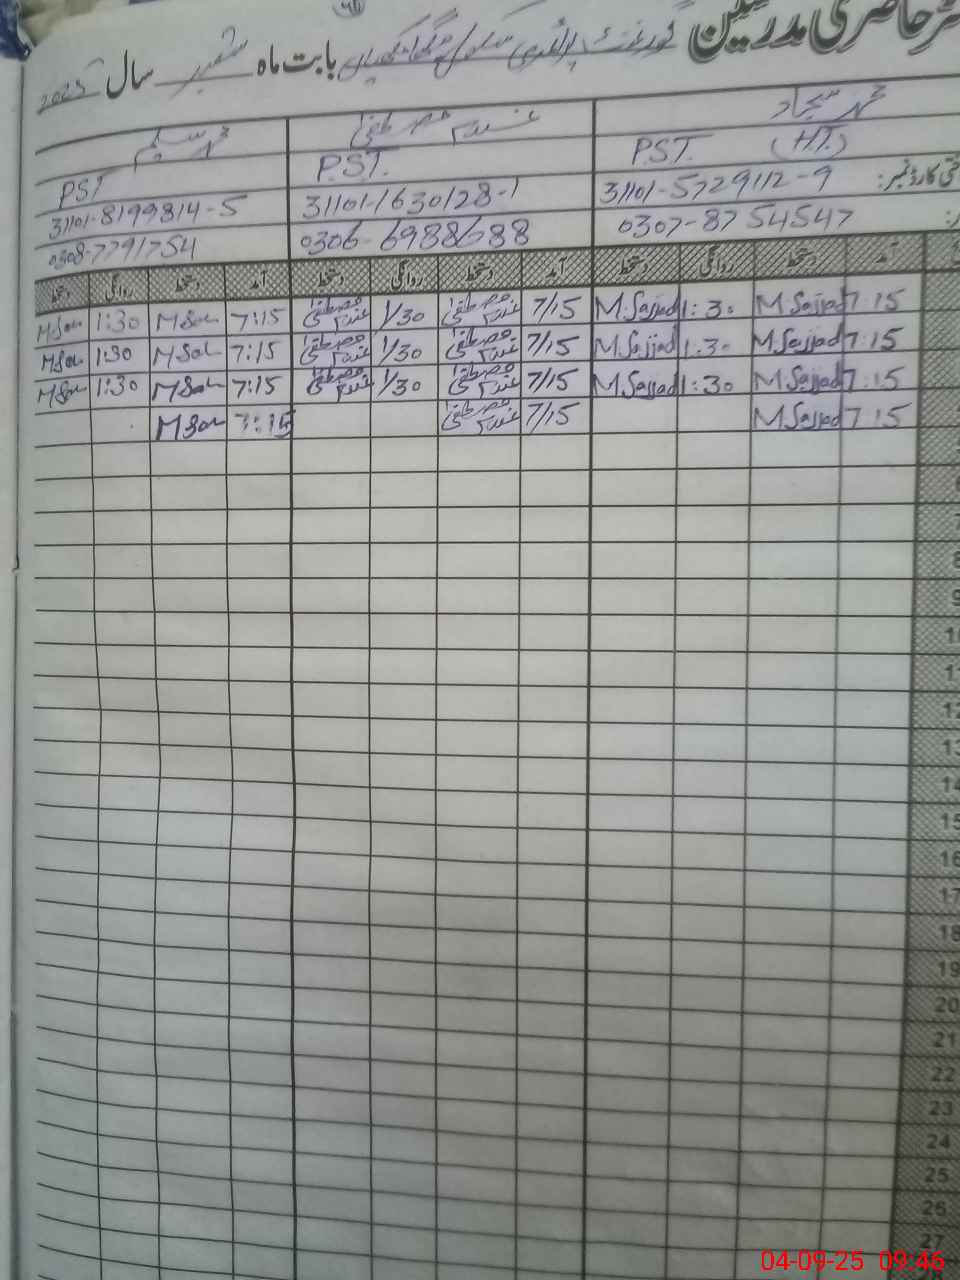 رجسٹر حاضری مدرسین گورنمنٹ پرائمری سکول بابت ماہ ستمبر سال 2025
محمد سجاد غلام مصطفیٰ محمد سلیم
PST (H.T) P.S.T. PST
شناختی کارڈ نمبر: 31101-5729112-9 31101-1630128-1 31101-8199814-5
0307-8754547 0306-6988688 0308-7791754
آمد دستخط روانگی دستخط آمد دستخط روانگی دستخط آمد دستخط روانگی دستخط
7:15 M Sajjad 1:30 M Sajjad 7/15 غلام مصطفیٰ 1/30 غلام مصطفیٰ 7:15 1:30
7:15 M Sajjad 1:30 M Sajjad 7/15 غلام مصطفیٰ 1/30 غلام مصطفیٰ 7:15 1:30
7:15 M Sajjad 1:30 M Sajjad 7/15 غلام مصطفیٰ 1/30 غلام مصطفیٰ 7:15 1:30
7:15 M Sajjad 7/15 غلام مصطفیٰ 7:15
6
7
8
9
10
11
12
13
14
15
16
17
18
19
20
21
22
23
24
25
26
27
04-09-25 09:46